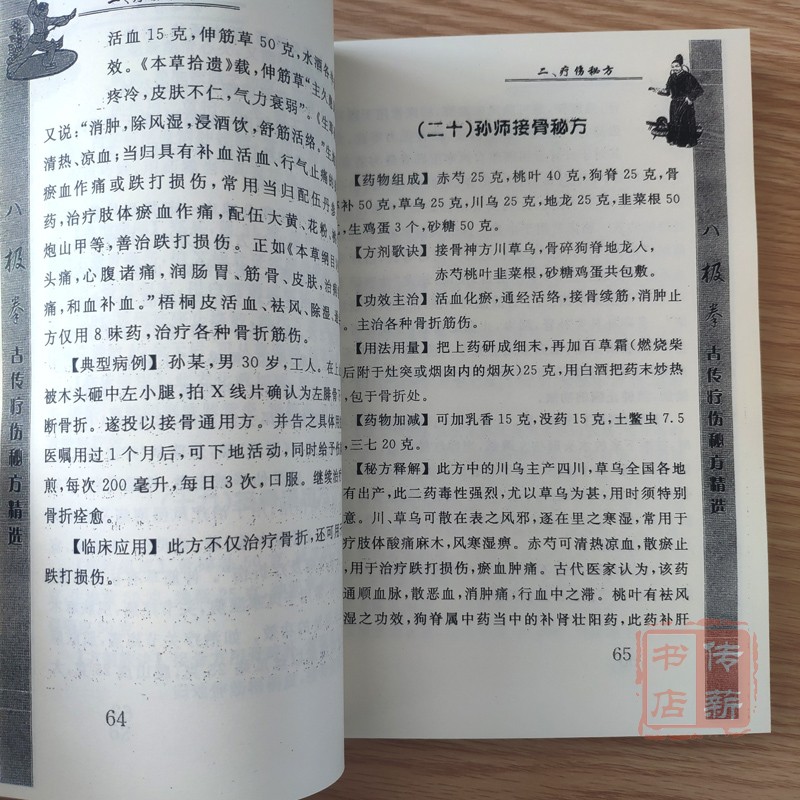 二、疗
活血15克，伸筋草50克，水酒各
效。《本草拾遗》载，伸筋草“主久
疼冷，皮肤不仁，气力衰弱”。《生
又说：“消肿，除风湿，浸酒饮，舒筋活络。”生
清热、凉血；当归具有补血活血、行气止痛
瘀血作痛或跌打损伤，常用当归配伍丹
药，治疗肢体瘀血作痛，配伍大黄、花粉、
炮山甲等，善治跌打损伤。正如《本草纲目
头痛，心腹诸痛，润肠胃、筋骨、皮肤，治
痛，和血补血。”梧桐皮活血、祛风、除湿、
方仅用8味药，治疗各种骨折筋伤。
【典型病例】孙某，男30岁，工人。在上
被木头砸中左小腿，拍X线片确认为左
断骨折。遂投以接骨通用方。并告之具体用
医嘱用过1个月后，可下地活动，同时给予
煎，每次200毫升，每日3次，口服。继续治
骨折痊愈。
【临床应用】此方不仅治疗骨折，还可用
跌打损伤。
64
八极拳古传疗伤秘方精选
二、疗伤秘方
(二十)孙师接骨秘方
【药物组成】赤芍25克，桃叶40克，狗脊25克，骨
补50克，草乌25克，川乌25克，地龙25克，韭菜根50
，生鸡蛋3个，砂糖50克。
【方剂歌诀】接骨神方川草乌，骨碎狗脊地龙人，
赤芍桃叶韭菜根，砂糖鸡蛋共包敷。
【功效主治】活血化瘀，通经活络，接骨续筋，消肿止
。主治各种骨折筋伤。
【用法用量】把上药研成细末，再加百草霜(燃烧柴
后附于灶突或烟囱内的烟灰)25克，用白酒把药末炒热
，包于骨折处。
【药物加减】可加乳香15克，没药15克，土鳖虫7.5
，三七20克。
【秘方释解】此方中的川乌主产四川，草乌全国各地
有出产，此二药毒性强烈，尤以草乌为甚，用时须特别
意。川、草乌可散在表之风邪，逐在里之寒湿，常用于
疗肢体酸痛麻木，风寒湿痹。赤芍可清热凉血，散瘀止
，用于治疗跌打损伤，瘀血肿痛。古代医家认为，该药
通顺血脉，散恶血，消肿痛，行血中之滞。桃叶有祛风
湿之功效，狗脊属中药当中的补肾壮阳药，此药补肝
65
八极拳古传疗伤秘方精选
传薪书店